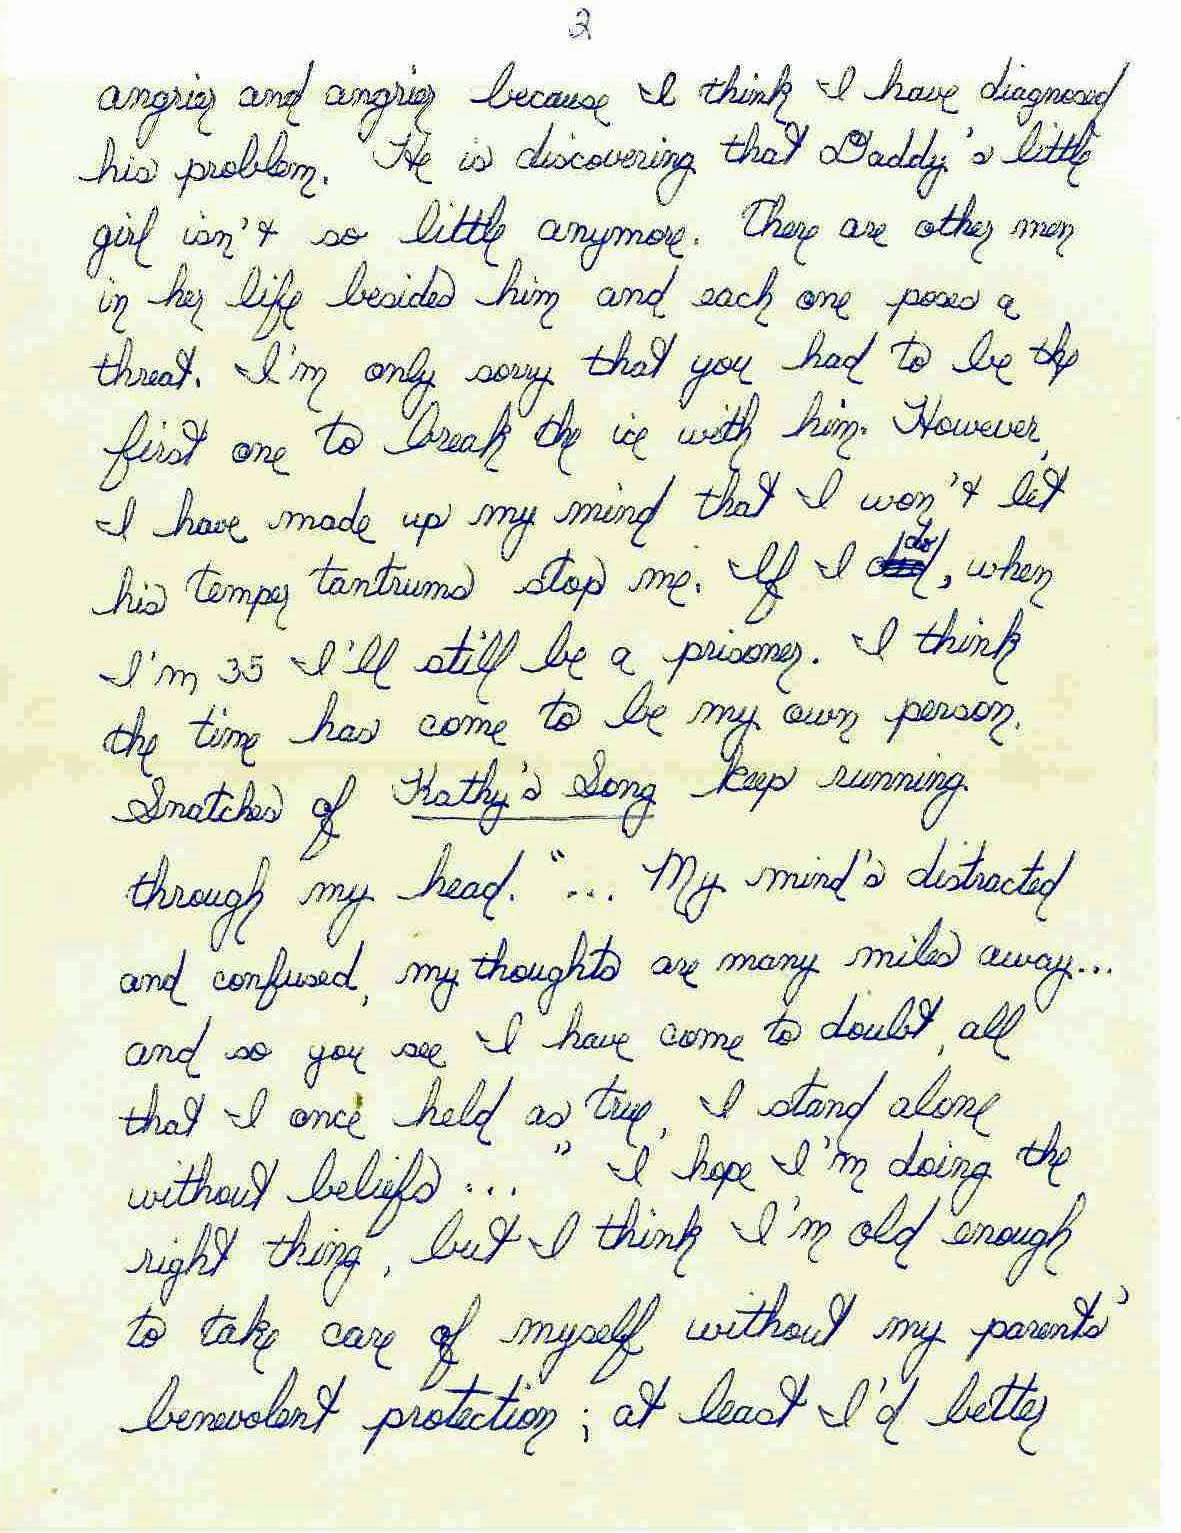 2
angrier and angrier because I think I have diagnosed
his problem. He is discovering that Daddy's little
girl isn't so little anymore. There are other men
in her life besides him and each one poses a
threat. I'm only sorry that you had to be the
first one to break the ice with him. However,
I have made up my mind that I won't let
his temper tantrums stop me. If I do, when
I'm 35 I'll still be a prisoner. I think
the time has come to be my own person.
Snatches of Kathy's Song keep running
through my head. "... My mind's distracted
and confused, my thoughts are many miles away...
and so you see I have come to doubt, all
that I once held as true, I stand alone
without beliefs ... " I hope I'm doing the
right thing, but I think I'm old enough
to take care of myself without my parents'
benevolent protection; at least I'd better